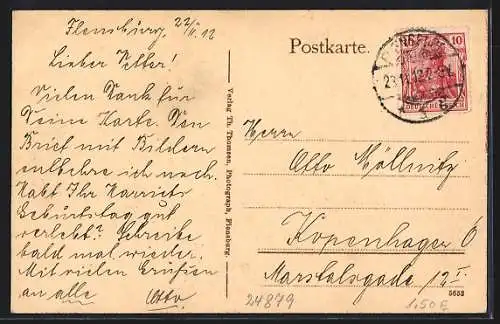 Flensburg, 22/II. 12
Lieber Vetter!
Vielen Dank für
Deine Karte. Den
Brief mit Bildern
entbehre ich noch.
Habt Ihr Harriets
Geburtstag gut
verlebt? Schreibe
bald mal wieder.
Mit vielen Grüßen
an alle Otto
Verlag Th. Thomsen, Photograph, Flensburg.
Postkarte.
10
DEUTSCHES REICH
Herrn
Otto Möllnitz
Kopenhagen Ö
Marstalsgade 12 I
5653
24879
1.50 E